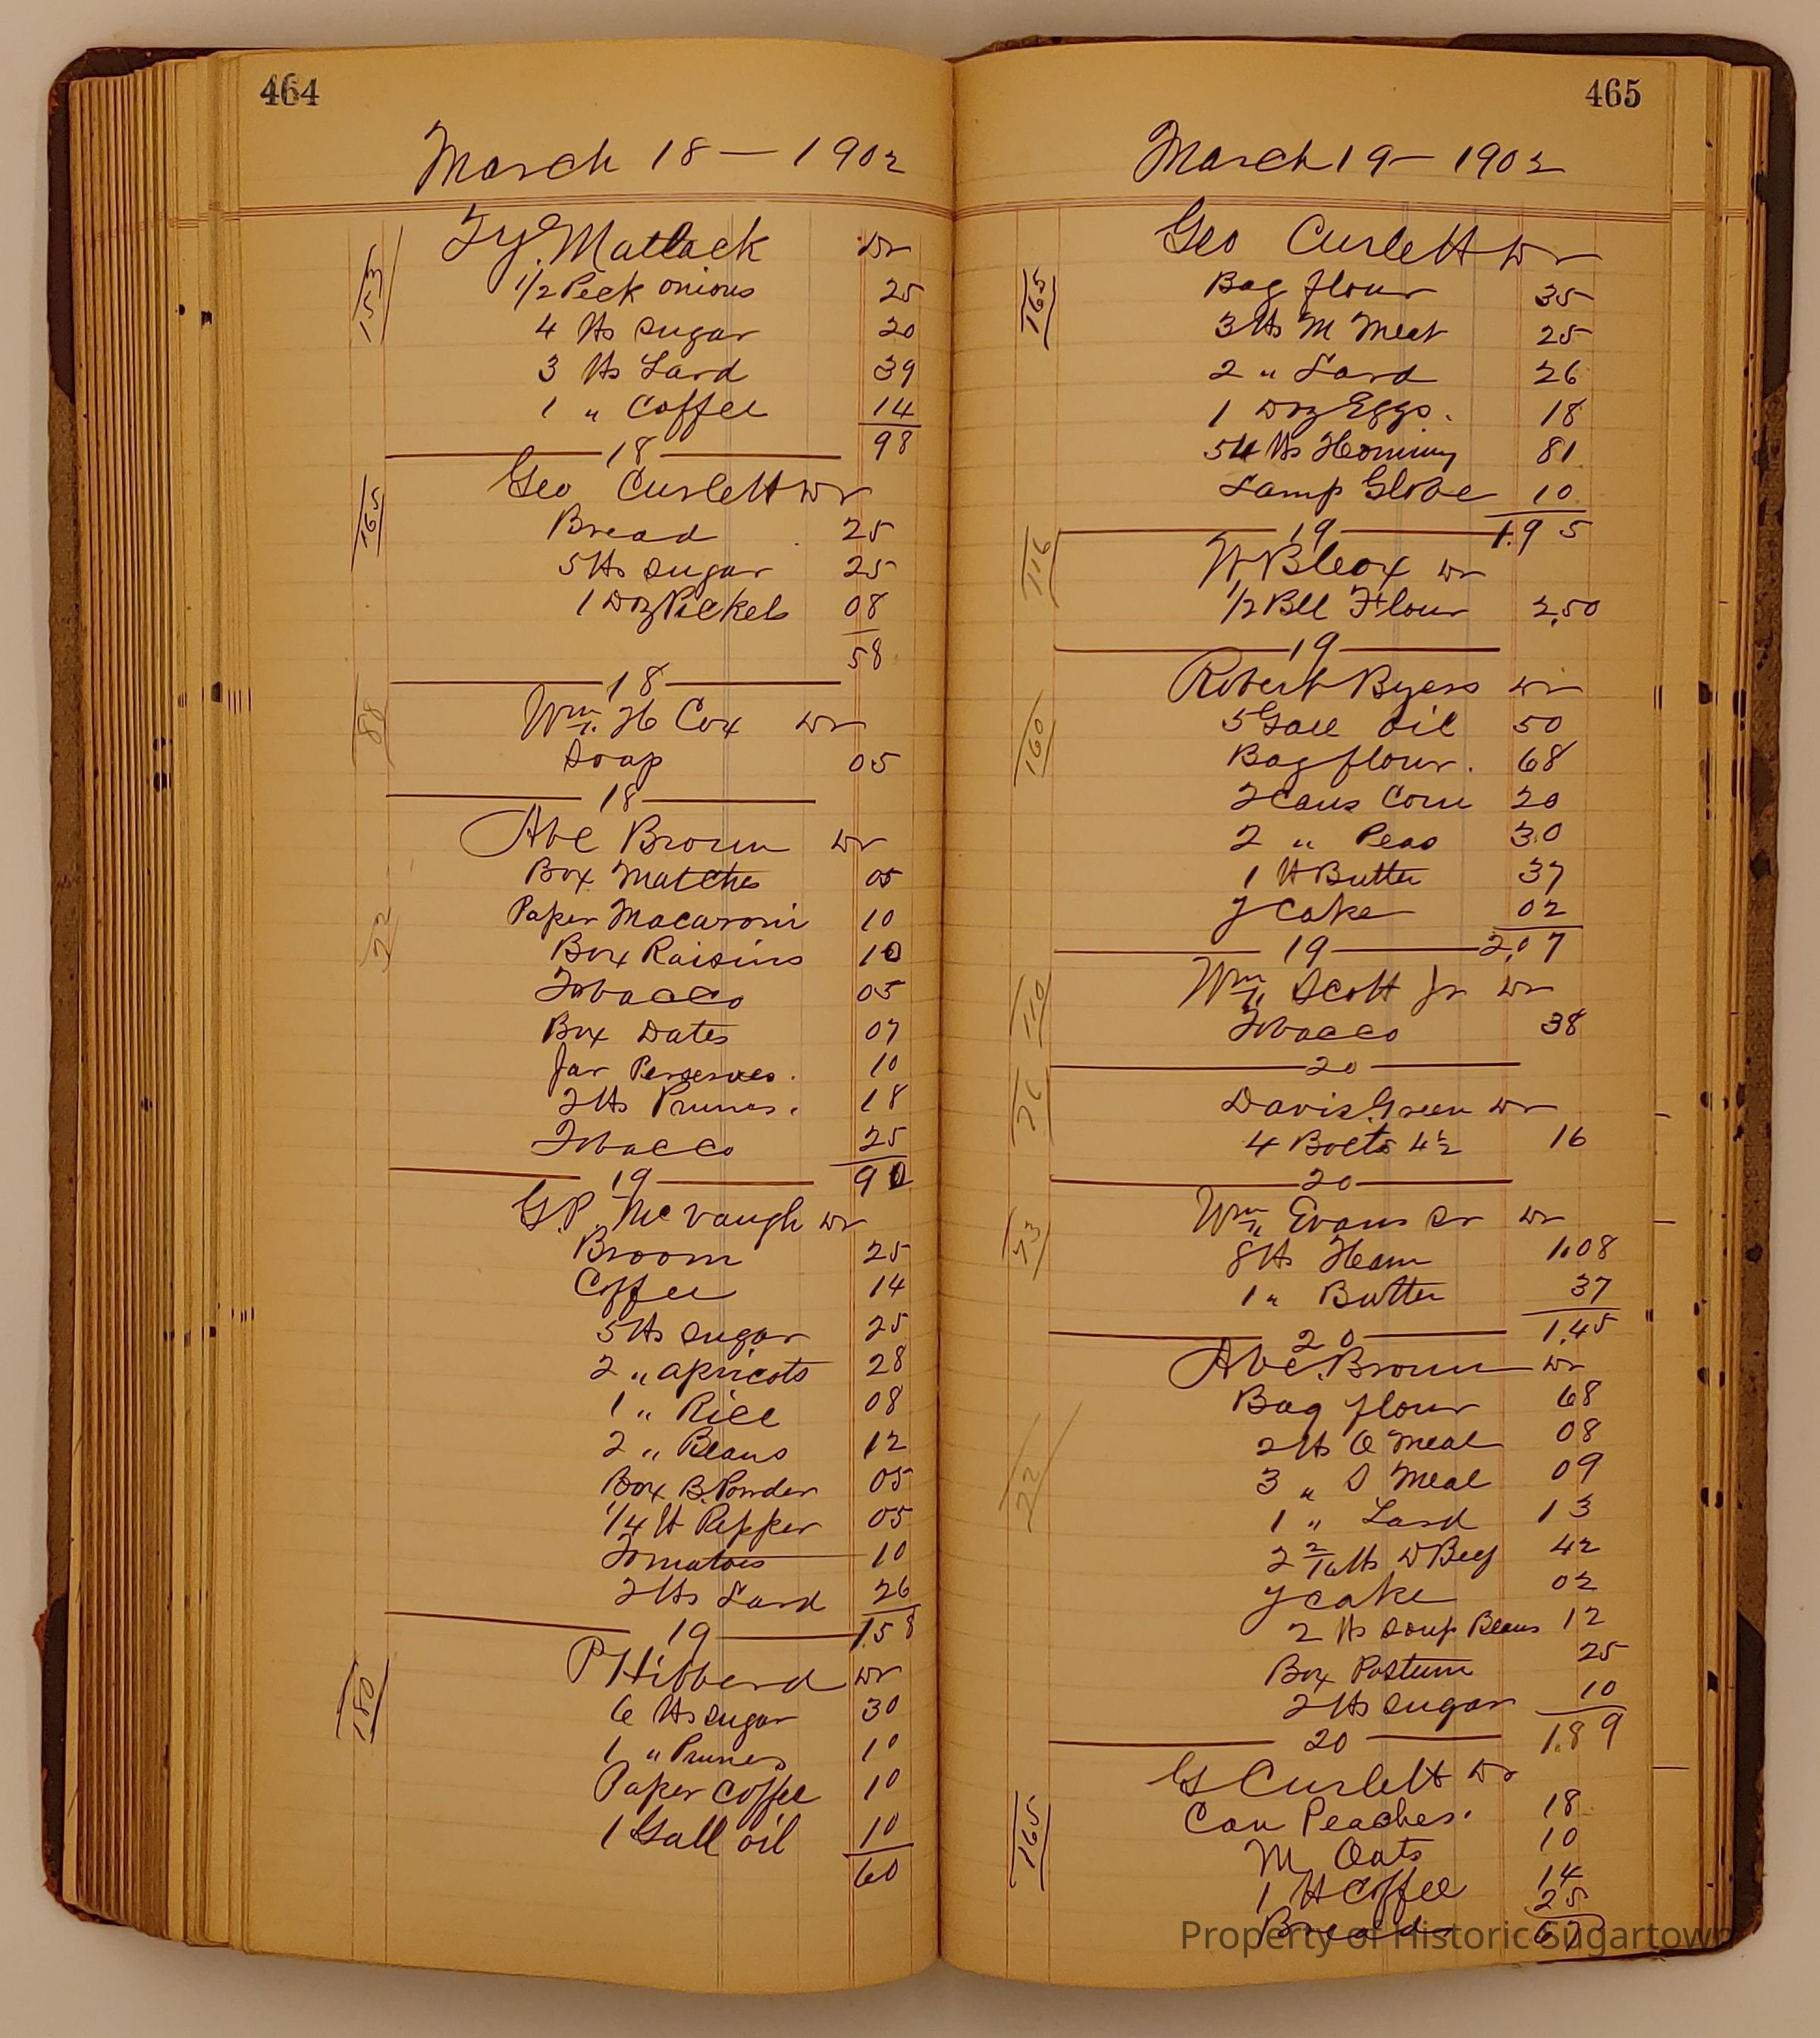 464
March 18 — 1902
153
Ty. Matlack Dr
1/2 Peck onions 25
4 lbs Sugar 20
3 lbs Lard 39
1 " Coffee 14
98
18
165
Geo Curlett Dr
Bread 25
5 lbs Sugar 25
1 Doz Pickels 08
58
18
88
Wm. H Cox Dr
Soap 05
18
Abe Brown Dr
22
Box Matches 05
Paper Macaroni 10
Box Raisins 10
Tobacco 05
Box Dates 07
Jar Perserves. 10
2 lbs Prunes. 18
Tobacco 25
90
19
G.P. McVaugh Dr
Broom 25
Coffee 14
5 lbs Sugar 25
2 " apricots 28
1 " Rice 08
2 " Beans 12
Box B. Powder 05
1/4 lb Pepper 05
Tomatoes 10
2 lbs Lard 26
1.58
19
180
P Hibberd Dr
6 lbs Sugar 30
1 " Prunes 10
Paper Coffee 10
1 Gall oil 10
60
465
March 19 — 1902
165
Geo Curlett Dr
Bag flour 35
3 lbs M Meat 25
2 " Lard 26
1 Doz Eggs. 18
54 lbs Hominy 81
Lamp Globe 10
1.95
19
116
Dr
1/2 Bll Flour 2.50
19
160
Robert Byers Dr
5 Gall oil 50
Bag flour. 68
2 cans Corn 20
2 " Peas 30
1 lb Butter 37
Y Cake 02
2.07
19
110
Wm. Scott Jr Dr
Tobacco 38
20
76
Davis Green Dr
4 Bolts 4½ 16
20
73
Wm. Evans Sr Dr
8 lbs Ham 1.08
1 " Butter 37
1.45
20
22
Abe. Brown Dr
Bag flour 68
2 lbs O Meal 08
3 " S Meal 09
1 " Lard 13
2 2/16 lbs D Beef 42
Y cake 02
2 lbs Soup Beans 12
Box Postum 25
2 lbs Sugar 10
1.89
20
165
G Curlett Dr
Can Peaches. 18
M Oats 10
1 lb Coffee 14
Bread 25
67
Property of Historic Sugartown